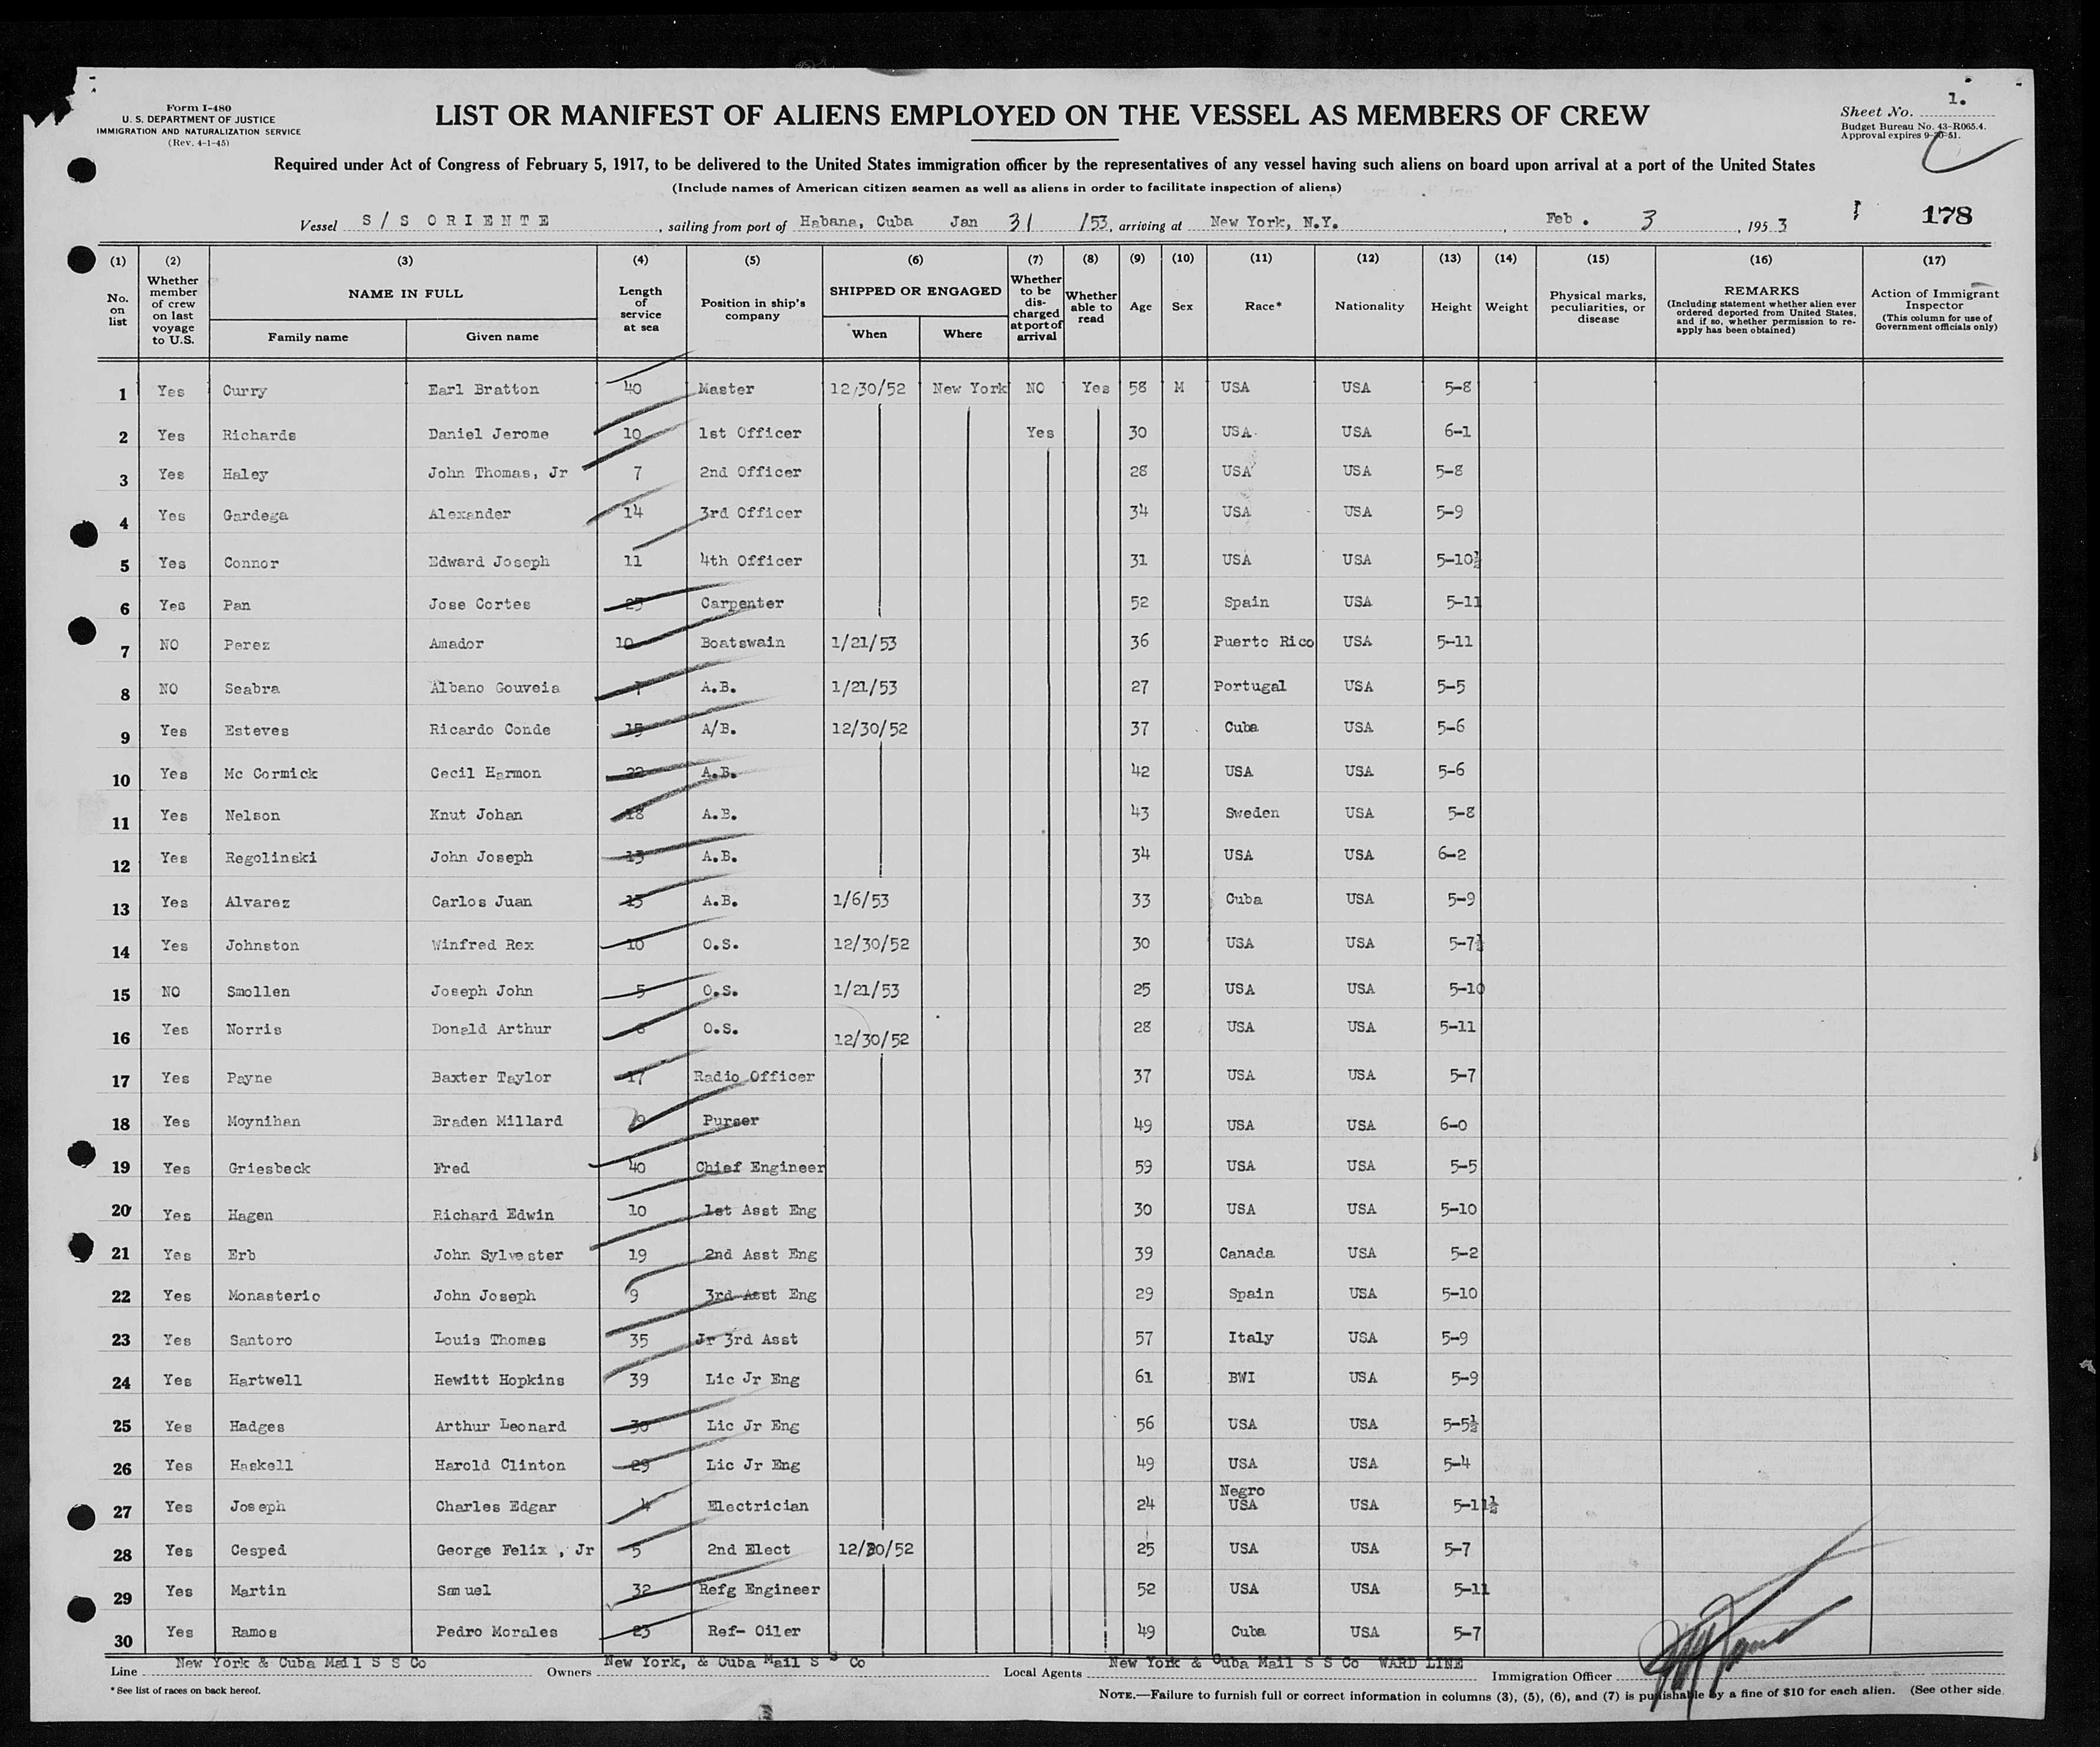 Form I-480
U. S. DEPARTMENT OF JUSTICE
IMMIGRATION AND NATURALIZATION SERVICE
(Rev. 4-1-45)
LIST OR MANIFEST OF ALIENS EMPLOYED ON THE VESSEL AS MEMBERS OF CREW
Sheet No. 1.
Budget Bureau No. 43-R065.4.
Approval expires 9-30-51.
Required under Act of Congress of February 5, 1917, to be delivered to the United States immigration officer by the representatives of any vessel having such aliens on board upon arrival at a port of the United States
(Include names of American citizen seamen as well as aliens in order to facilitate inspection of aliens)
Vessel S/S ORIENTE, sailing from port of Habana, Cuba Jan 31 /53, arriving at New York, N.Y., Feb. 3, 1953
178
(1) (2) (3) (4) (5) (6) (7) (8) (9) (10) (11) (12) (13) (14) (15) (16) (17)
No. on list
Whether member of crew on last voyage to U.S.
NAME IN FULL
Family name Given name
Length of service at sea
Position in ship's company
SHIPPED OR ENGAGED
When Where
Whether to be discharged at port of arrival
Whether able to read
Age
Sex
Race*
Nationality
Height
Weight
Physical marks, peculiarities, or disease
REMARKS
(Including statement whether alien ever ordered deported from United States, and if so, whether permission to re-apply has been obtained)
Action of Immigrant Inspector
(This column for use of Government officials only)
1 Yes Curry Earl Bratton 40 Master 12/30/52 New York NO Yes 58 M USA USA 5-8
2 Yes Richards Daniel Jerome 10 1st Officer Yes 30 USA USA 6-1
3 Yes Haley John Thomas, Jr 7 2nd Officer 28 USA USA 5-8
4 Yes Gardega Alexander 14 3rd Officer 34 USA USA 5-9
5 Yes Connor Edward Joseph 11 4th Officer 31 USA USA 5-10½
6 Yes Pan Jose Cortes 25 Carpenter 52 Spain USA 5-11
7 NO Perez Amador 10 Boatswain 1/21/53 36 Puerto Rico USA 5-11
8 NO Seabra Albano Gouveia A.B. 1/21/53 27 Portugal USA 5-5
9 Yes Esteves Ricardo Conde 15 A/B. 12/30/52 37 Cuba USA 5-6
10 Yes Mc Cormick Cecil Harmon 22 A.B. 42 USA USA 5-6
11 Yes Nelson Knut Johan 18 A.B. 43 Sweden USA 5-8
12 Yes Regolinski John Joseph 13 A.B. 34 USA USA 6-2
13 Yes Alvarez Carlos Juan 13 A.B. 1/6/53 33 Cuba USA 5-9
14 Yes Johnston Winfred Rex 10 O.S. 12/30/52 30 USA USA 5-7½
15 NO Smollen Joseph John 5 O.S. 1/21/53 25 USA USA 5-10
16 Yes Norris Donald Arthur O.S. 12/30/52 28 USA USA 5-11
17 Yes Payne Baxter Taylor 17 Radio Officer 37 USA USA 5-7
18 Yes Moynihan Braden Millard Purser 49 USA USA 6-0
19 Yes Griesbeck Fred 40 Chief Engineer 59 USA USA 5-5
20 Yes Hagen Richard Edwin 10 1st Asst Eng 30 USA USA 5-10
21 Yes Erb John Sylvester 19 2nd Asst Eng 39 Canada USA 5-2
22 Yes Monasterio John Joseph 9 3rd Asst Eng 29 Spain USA 5-10
23 Yes Santoro Louis Thomas 35 Jr 3rd Asst 57 Italy USA 5-9
24 Yes Hartwell Hewitt Hopkins 39 Lic Jr Eng 61 BWI USA 5-9
25 Yes Hadges Arthur Leonard 30 Lic Jr Eng 56 USA USA 5-5½
26 Yes Haskell Harold Clinton 29 Lic Jr Eng 49 USA USA 5-4
27 Yes Joseph Charles Edgar 4 Electrician 24 Negro USA USA 5-11½
28 Yes Cesped George Felix , Jr 5 2nd Elect 12/30/52 25 USA USA 5-7
29 Yes Martin Samuel 32 Refg Engineer 52 USA USA 5-11
30 Yes Ramos Pedro Morales 23 Ref- Oiler 49 Cuba USA 5-7
Line New York & Cuba Mail S S Co Owners New York, & Cuba Mail S S Co Local Agents New York & Cuba Mail S S Co WARD LINE Immigration Officer
*See list of races on back hereof.
NOTE.—Failure to furnish full or correct information in columns (3), (5), (6), and (7) is punishable by a fine of $10 for each alien. (See other side